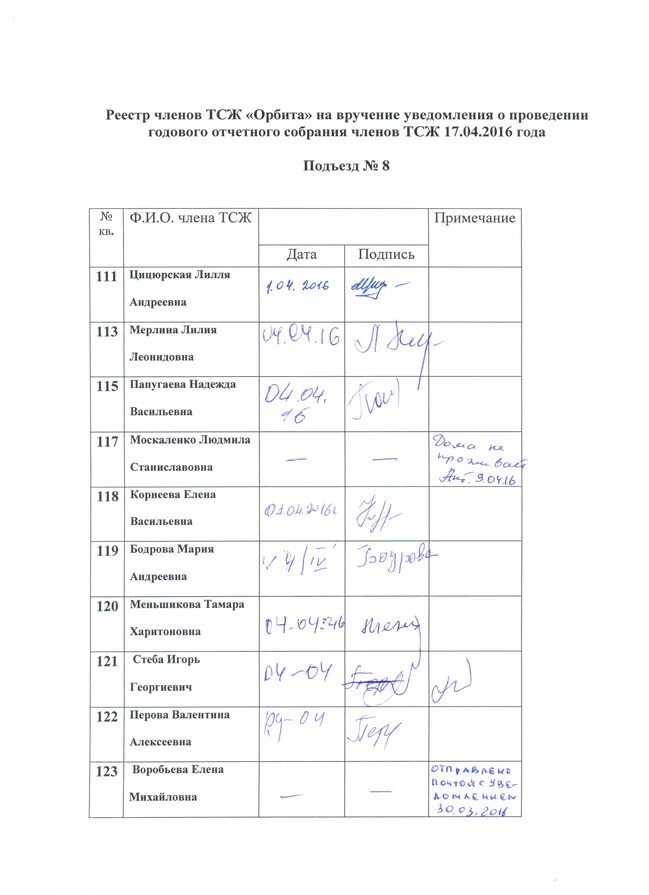 Реестр членов ТСЖ «Орбита» на вручение уведомления о проведении
годового отчетного собрания членов ТСЖ 17.04.2016 года
Подъезд № 8
№ кв. Ф.И.О. члена ТСЖ Примечание
Дата Подпись
111 Цицюрская Лилля 1.04.2016
Андреевна
113 Мерлина Лилия 04.04.16
Леонидовна
115 Папугаева Надежда 04.04.
Васильевна 16
117 Москаленко Людмила — — Дома не
Станиславовна проживает
9.04.16
118 Корнеева Елена 01.04.2016г
Васильевна
119 Бодрова Мария 4/IV Бодрова
Андреевна
120 Меньшикова Тамара 04-04-16
Харитоновна
121 Стеба Игорь 04-04
Георгиевич
122 Перова Валентина 04-04
Алексеевна
123 Воробьева Елена — — отправлено
Михайловна почтой с уве-
домлением
30.03.2016